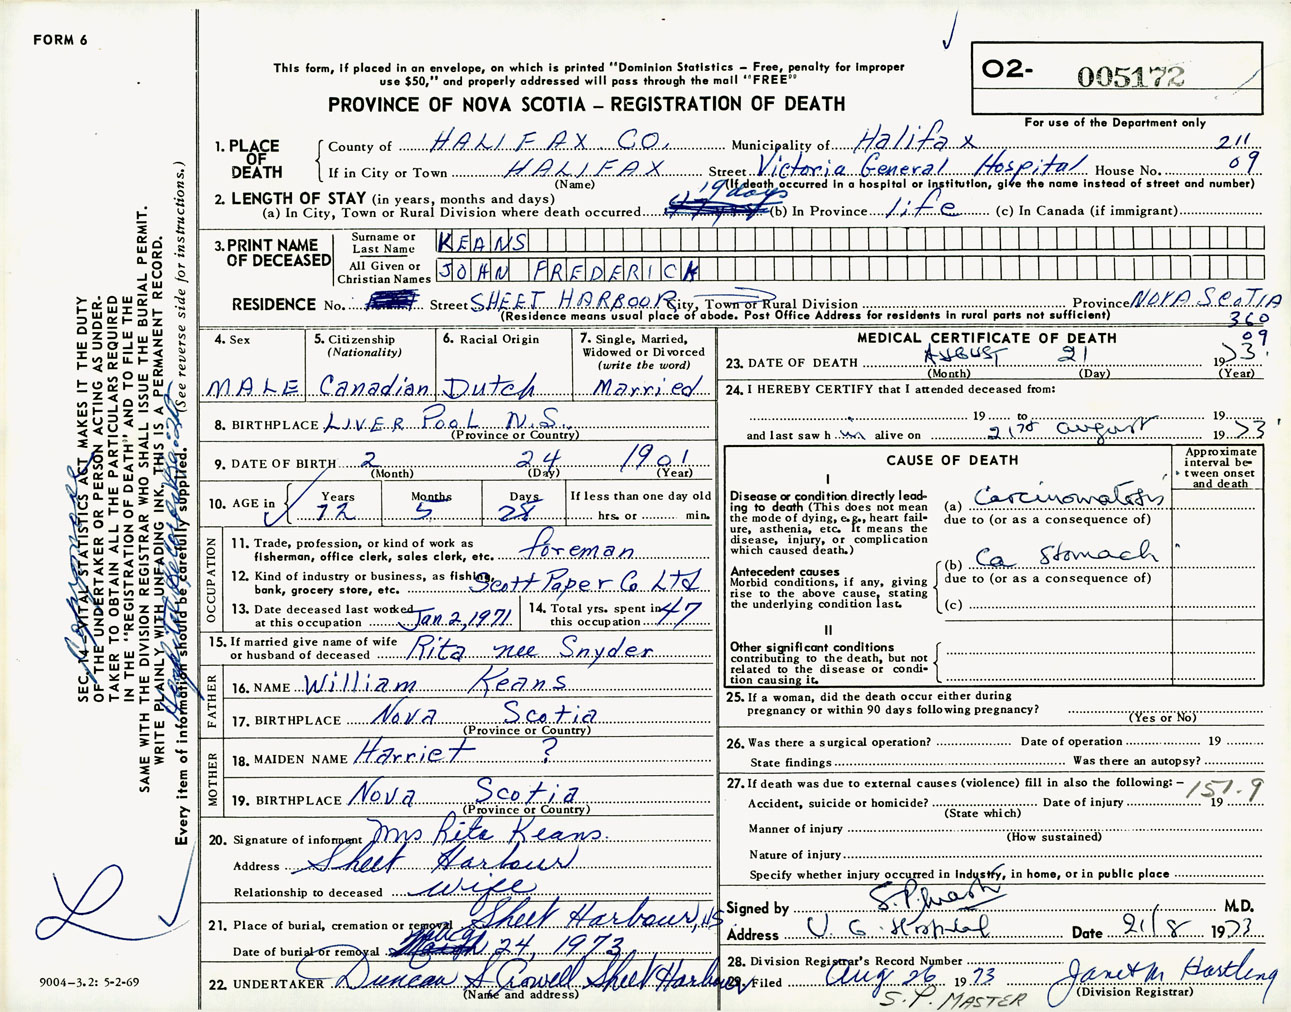 FORM 6
This form, if placed in an envelope, on which is printed "Dominion Statistics – Free, penalty for improper
use $50," and properly addressed will pass through the mail "FREE"
PROVINCE OF NOVA SCOTIA – REGISTRATION OF DEATH
O2- 005172
For use of the Department only
1. PLACE OF DEATH County of HALIFAX CO. Municipality of Halifax 211
If in City or Town HALIFAX Street Victoria General Hospital House No. 09
(Name) (If death occurred in a hospital or institution, give the name instead of street and number)
2. LENGTH OF STAY (in years, months and days) 19 days
(a) In City, Town or Rural Division where death occurred (b) In Province life (c) In Canada (if immigrant)
3. PRINT NAME OF DECEASED Surname or Last Name KEANS
All Given or Christian Names JOHN FREDERICK
RESIDENCE No. Street SHEET HARBOUR City, Town or Rural Division Province NOVA SCOTIA
(Residence means usual place of abode. Post Office Address for residents in rural parts not sufficient) 360
09
4. Sex 5. Citizenship (Nationality) 6. Racial Origin 7. Single, Married, Widowed or Divorced (write the word)
MALE Canadian Dutch Married
8. BIRTHPLACE LIVERPOOL N.S.
(Province or Country)
9. DATE OF BIRTH 2 24 1901
(Month) (Day) (Year)
10. AGE in Years Months Days If less than one day old
72 5 28 hrs. or min.
OCCUPATION
11. Trade, profession, or kind of work as fisherman, office clerk, sales clerk, etc. foreman
12. Kind of industry or business, as fishing, bank, grocery store, etc. Scott Paper Co Ltd
13. Date deceased last worked at this occupation Jan 2, 1971 14. Total yrs. spent in this occupation 47
15. If married give name of wife or husband of deceased Rita nee Snyder
FATHER
16. NAME William Keans
17. BIRTHPLACE Nova Scotia
(Province or Country)
MOTHER
18. MAIDEN NAME Harriet ?
19. BIRTHPLACE Nova Scotia
(Province or Country)
20. Signature of informant Mrs Rita Keans.
Address Sheet Harbour
Relationship to deceased wife
21. Place of burial, cremation or removal Sheet Harbour, NS
Date of burial or removal 24, 1973
22. UNDERTAKER Duncan S Crowell Sheet Harbour
(Name and address)
MEDICAL CERTIFICATE OF DEATH
23. DATE OF DEATH AUGUST 21 1973
(Month) (Day) (Year)
24. I HEREBY CERTIFY that I attended deceased from:
19 to 19
and last saw h im alive on 21st august 1973
CAUSE OF DEATH
Approximate interval between onset and death
I
Disease or condition directly leading to death (This does not mean the mode of dying, e.g., heart failure, asthenia, etc. It means the disease, injury, or complication which caused death.)
(a) Carcinomatosis
due to (or as a consequence of)
Antecedent causes
Morbid conditions, if any, giving rise to the above cause, stating the underlying condition last.
(b) Ca Stomach
due to (or as a consequence of)
(c)
II
Other significant conditions
contributing to the death, but not related to the disease or condition causing it.
25. If a woman, did the death occur either during
pregnancy or within 90 days following pregnancy?
(Yes or No)
26. Was there a surgical operation? Date of operation 19
State findings Was there an autopsy?
27. If death was due to external causes (violence) fill in also the following: – 151.9
Accident, suicide or homicide? Date of injury 19
(State which)
Manner of injury
(How sustained)
Nature of injury
Specify whether injury occurred in Industry, in home, or in public place
Signed by M.D.
Address V. G. Hospital Date 21/8 1973
28. Division Registrar's Record Number
29. Filed Aug 26 1973 Janet M Hartling
(Division Registrar)
S. P. MASTER
SEC. 14 – VITAL STATISTICS ACT MAKES IT THE DUTY
OF THE UNDERTAKER OR PERSON ACTING AS UNDERTAKER TO OBTAIN ALL THE PARTICULARS REQUIRED
IN THE "REGISTRATION OF DEATH" AND TO FILE THE
SAME WITH THE DIVISION REGISTRAR WHO SHALL ISSUE THE BURIAL PERMIT.
WRITE PLAINLY WITH UNFADING INK, THIS IS A PERMANENT RECORD.
Every item of information should be carefully supplied. (See reverse side for instructions.)
9004-3.2: 5-2-69